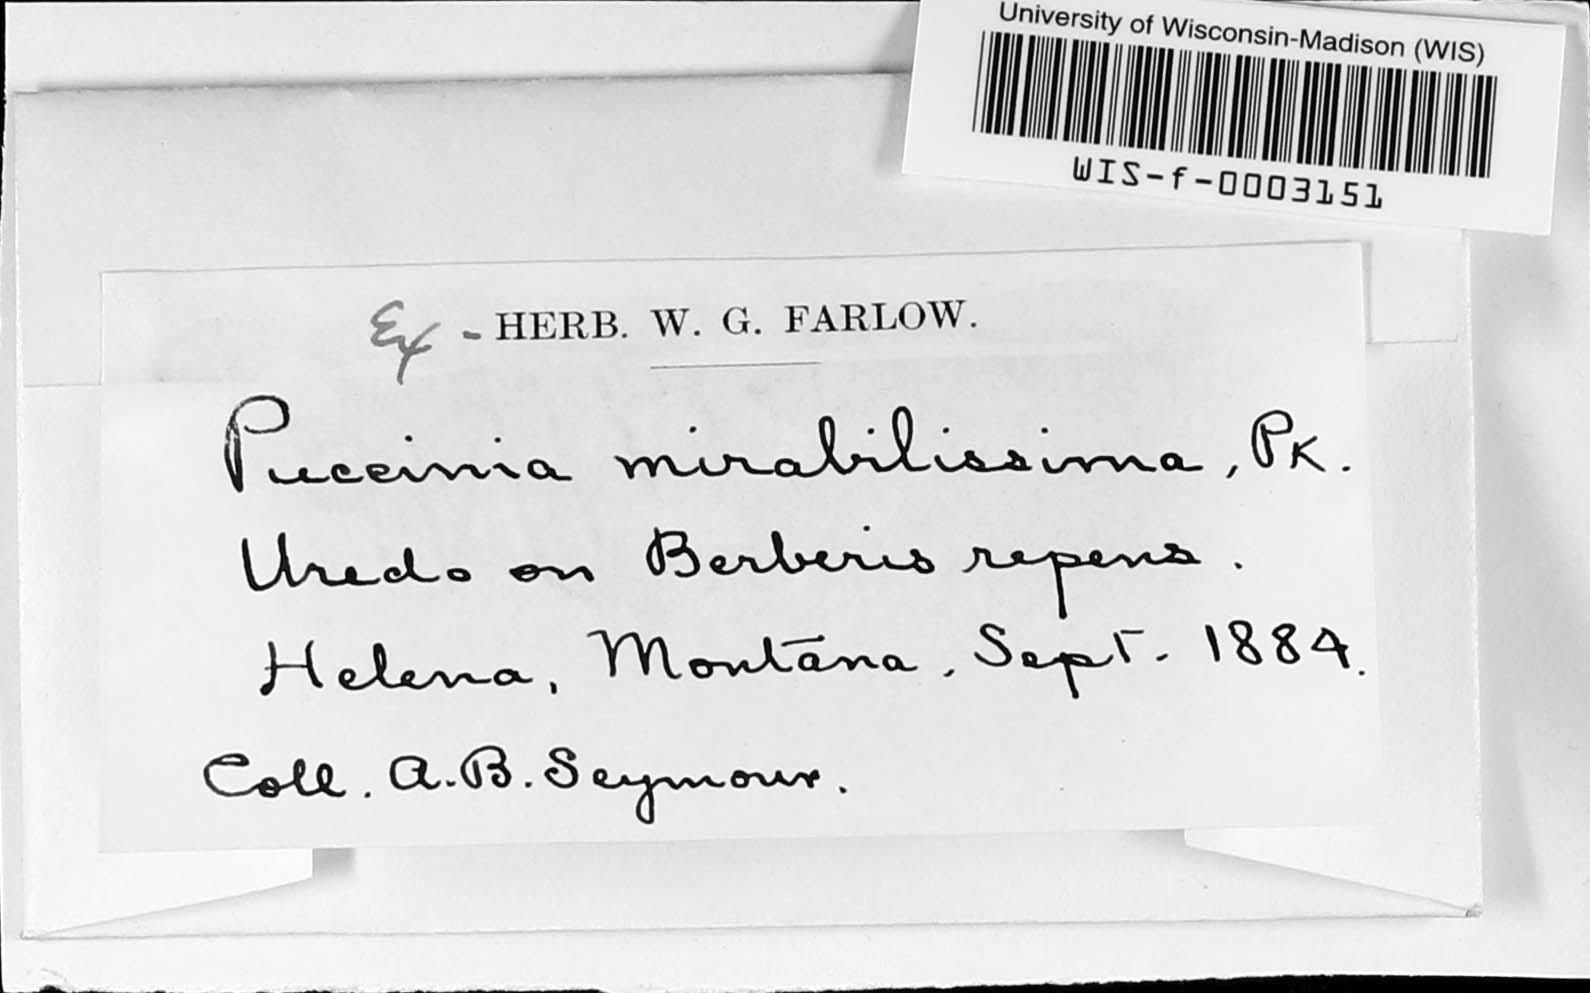 University of Wisconsin-Madison (WIS)
WIS-f-0003151
Ex - HERB. W. G. FARLOW.
Puccinia mirabilissima, Pk.
Uredo on Berberis repens.
Helena, Montana, Sept. 1884.
Coll. A. B. Seymour.